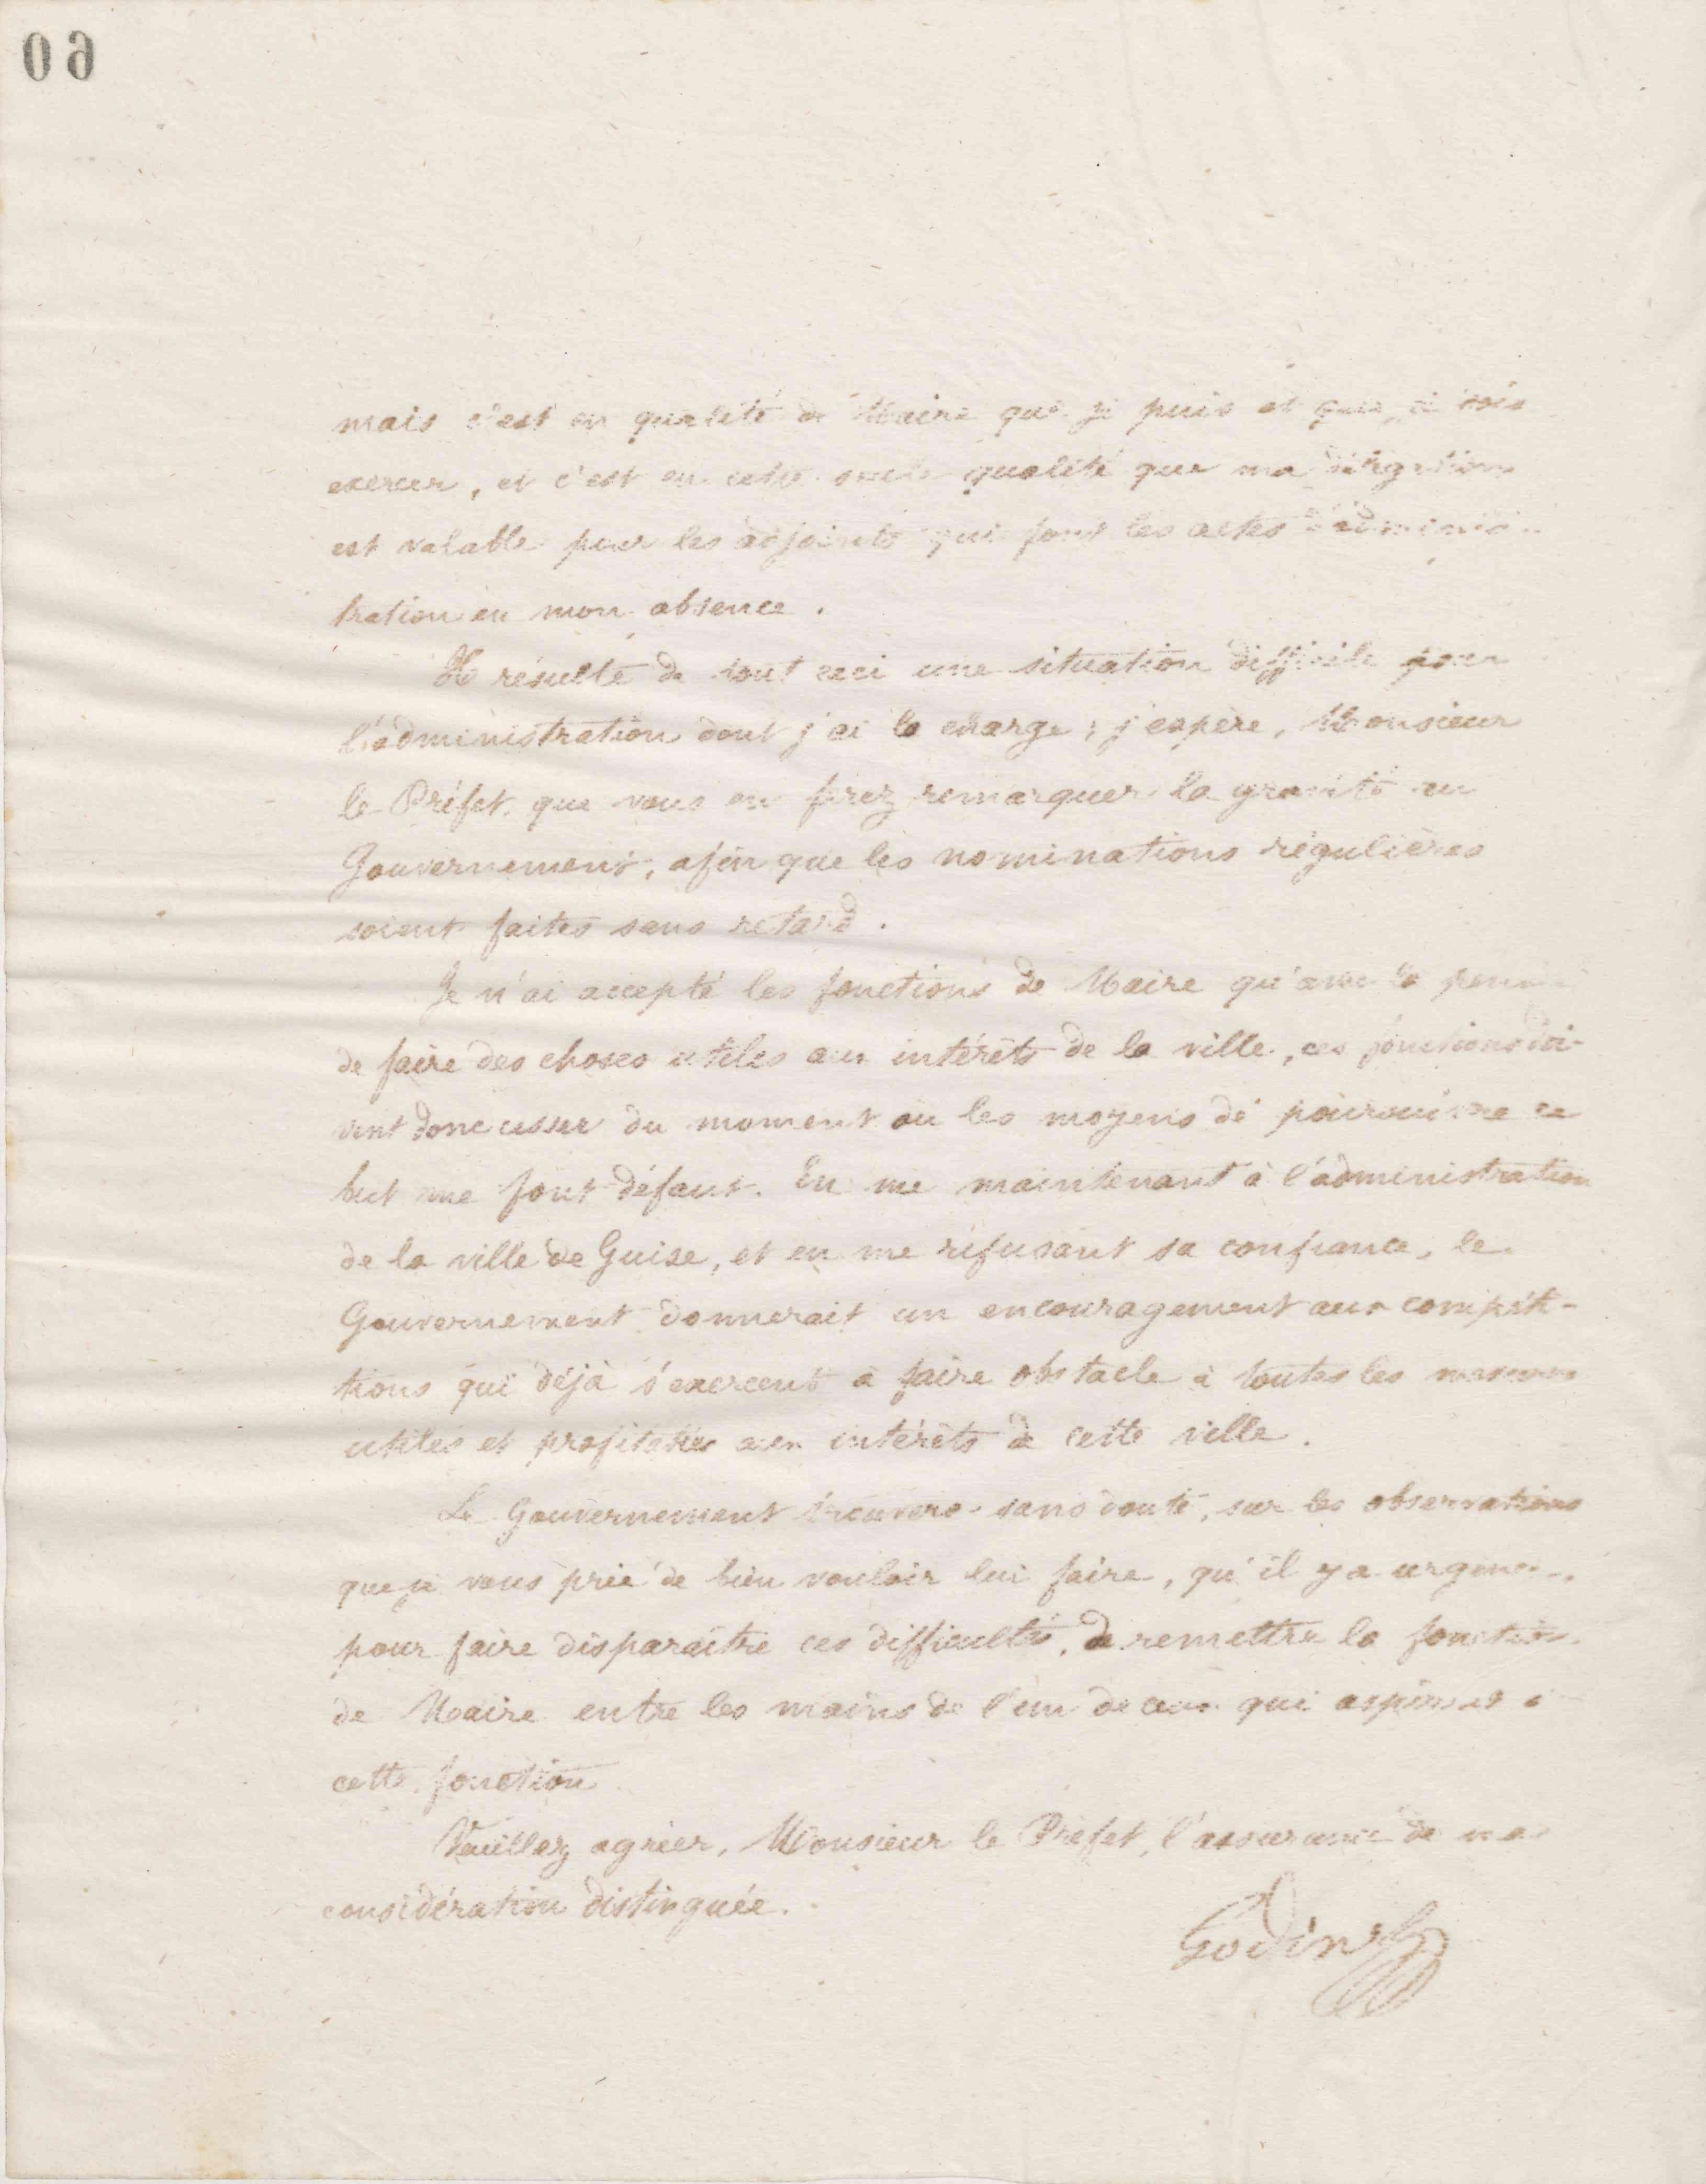 60
mais c'est en qualité de Maire que je puis et que je dois
exercer, et c'est en cette seule qualité que ma délégation
est valable pour les adjoints qui font les actes d'adminis-
tration en mon absence.
Il résulte de tout ceci une situation difficile pour
l'administration dont j'ai la charge ; j'espère, Monsieur
le Préfet, que vous en ferez remarquer la gravité au
Gouvernement, afin que les nominations régulières
soient faites sans retard.
Je n'ai accepté les fonctions de Maire qu'avec la pensée
de faire des choses utiles aux intérêts de la ville, ces fonctions doi-
vent donc cesser du moment où les moyens de poursuivre ce
but me font défaut. En me maintenant à l'administration
de la ville de Guise, et en me refusant sa confiance, le
Gouvernement donnerait un encouragement aux compéti-
tions qui déjà s'exercent à faire obstacle à toutes les mesures
utiles et profitables aux intérêts de cette ville.
Le Gouvernement trouvera sans doute, sur les observations
que je vous prie de bien vouloir lui faire, qu'il y a urgence,
pour faire disparaître ces difficultés, de remettre la fonction
de Maire entre les mains de l'un de ceux qui aspirent à
cette fonction
Veuillez agréer, Monsieur le Préfet, l'assurance de ma
considération distinguée.
Godin